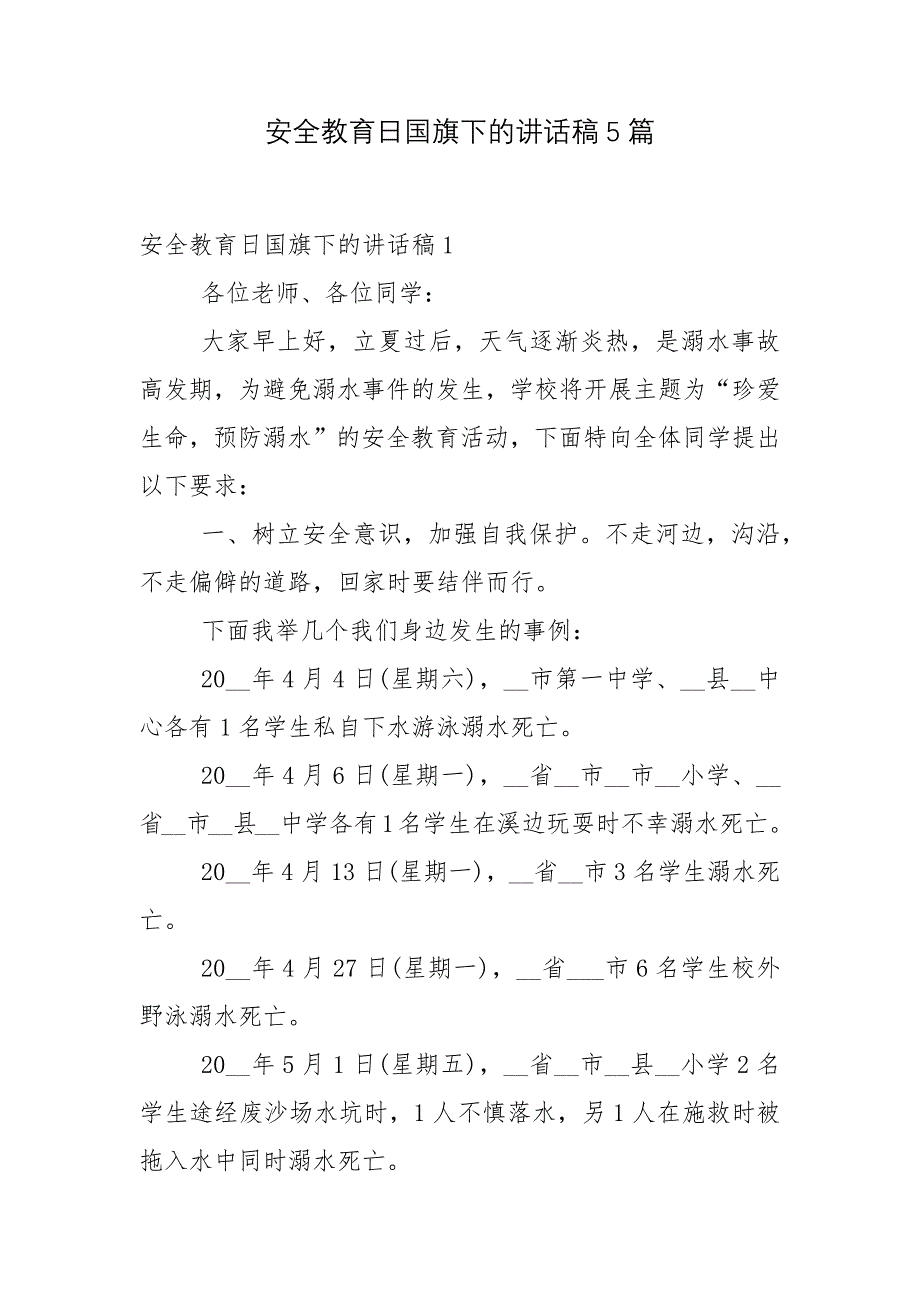 安全教育日国旗下的讲话稿5篇
安全教育日国旗下的讲话稿1
各位老师、各位同学：
大家早上好，立夏过后，天气逐渐炎热，是溺水事故
高发期，为避免溺水事件的发生，学校将开展主题为“珍爱
生命，预防溺水”的安全教育活动，下面特向全体同学提出
以下要求：
一、树立安全意识，加强自我保护。不走河边，沟沿，
不走偏僻的道路，回家时要结伴而行。
下面我举几个我们身边发生的事例：
20__年4月4日(星期六)，__市第一中学、__县__中
心各有1名学生私自下水游泳溺水死亡。
20__年4月6日(星期一)，__省__市__市__小学、__
省__市__县__中学各有1名学生在溪边玩耍时不幸溺水死亡。
20__年4月13日(星期一)，__省__市3名学生溺水死
亡。
20__年4月27日(星期一)，__省___市6名学生校外
野泳溺水死亡。
20__年5月1日(星期五)，__省__市__县__小学2名
学生途经废沙场水坑时，1人不慎落水，另1人在施救时被
拖入水中同时溺水死亡。